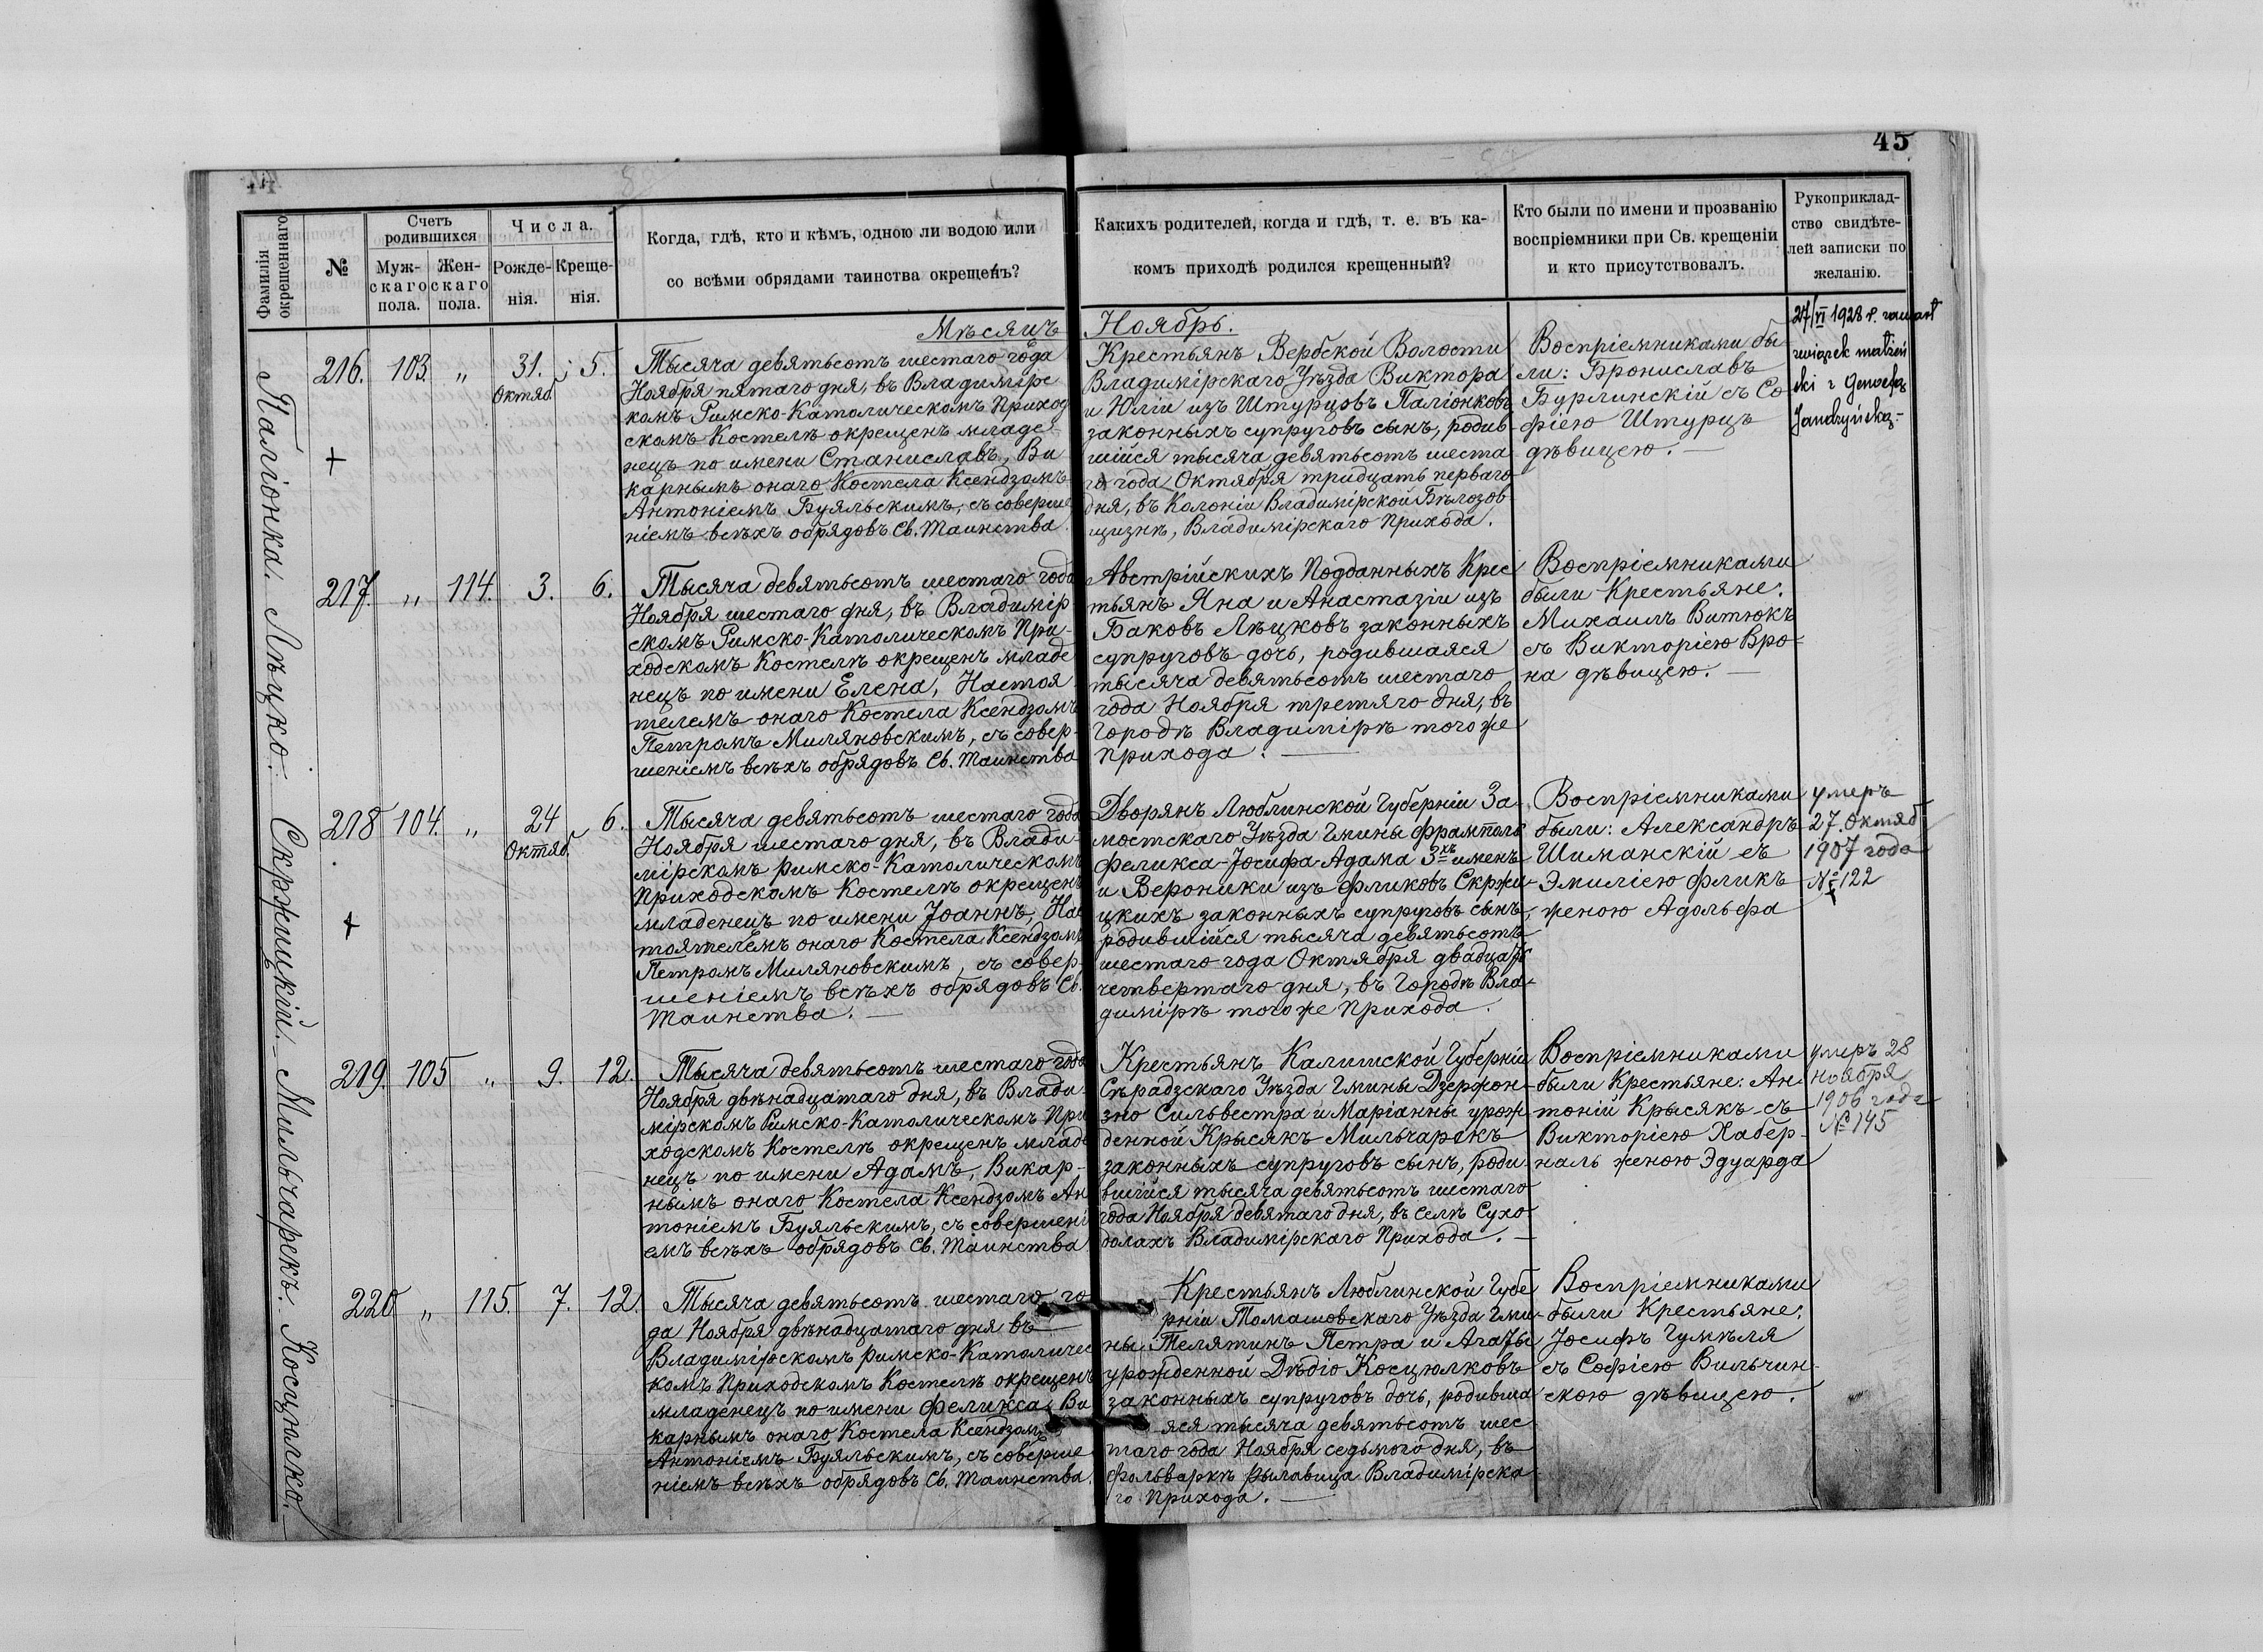 45
Фамилія окрещеннаго
№
Счетъ родившихся
Мужскаго пола.
Женскаго пола.
Числа.
Рожденія.
Крещенія.
Когда, гдѣ, кто и кѣмъ, одною ли водою или
со всѣми обрядами таинства окрещенъ?
Какихъ родителей, когда и гдѣ, т. е. въ ка-
комъ приходѣ родился крещенный?
Кто были по имени и прозванію
воспріемники при Св. крещеніи
и кто присутствовалъ.
Рукоприклад-
ство свидѣте-
лей записки по
желанію.
Мѣсяцъ Ноябрь.
Паліонка.
216. 103. „ 31. Октяб. 5.
Тысяча девятьсотъ шестаго года
Ноября пятаго дня, въ Владимірс
комъ Римско-Католическомъ Приход
скомъ Костелѣ окрещенъ младе
нецъ по имени Станиславъ, Ви
карнымъ онаго Костела Ксендзомъ
Антоніемъ Буяльскимъ, съ соверше
ніемъ всѣхъ обрядовъ Св. Таинства.
Крестьянъ Вербской Волости
Владимірскаго Уѣзда Виктора
и Юліи изъ Штурцовъ Паліонковъ
законныхъ супруговъ сынъ, родив-
шійся тысяча девятьсотъ шеста
го года Октября тридцать перваго
дня, въ Колоніи Владимірской Бѣлозов
щизнѣ, Владимірскаго Прихода.
Воспріемниками бы-
ли: Брониславъ
Бурлинскій съ Со
фіею Штурцъ
дѣвицею. —
27/VI 1928 r. zawarł
związek małżeń
ski z Genowefą
Jandzyńską.-
Лѣцко.
217. „ 114. 3. 6.
Тысяча девятьсотъ шестаго года
Ноября шестаго дня, въ Владимір
скомъ Римско-Католическомъ При-
ходскомъ Костелѣ окрещенъ младе
нецъ по имени Елена, Настоя
телемъ онаго Костела Ксендзомъ
Петромъ Миляновскимъ, съ совер-
шеніемъ всѣхъ обрядовъ Св. Таинства
Австрійскихъ Подданныхъ Крес
тьянъ Яна и Анастазіи изъ
Баковъ Лѣцковъ законныхъ
супруговъ дочь, родившаяся
тысяча девятьсотъ шестаго
года Ноября третяго дня, въ
Городѣ Владимірѣ того же
Прихода. —
Воспріемниками
были Крестьяне:
Михаилъ Витюкъ
съ Викторіею Вро-
на дѣвицею. —
Скржицкій.
218 104. „ 24 Октяб. 6.
Тысяча девятьсотъ шестаго года
Ноября шестаго дня, въ Влади-
мірскомъ Римско-Католическомъ
Приходскомъ Костелѣ окрещенъ
младенецъ по имени Іоаннъ, Нас
тоятелемъ онаго Костела Ксендзомъ
Петромъ Миляновскимъ, съ совер-
шеніемъ всѣхъ обрядовъ Св.
Таинства. —
Дворянъ Люблинской Губерніи За-
мостскаго Уѣзда Гмины Фрамполь
Феликса-Іосифа-Адама 3хъ именъ
и Вероники изъ Фликовъ Скржи-
цкихъ законныхъ супруговъ сынъ,
родившійся тысяча девятьсотъ
шестаго года Октября двадцать
четвертаго дня, въ Городѣ Вла-
димірѣ того же Прихода.
Воспріемниками
были: Александръ
Шиманскій съ
Эмиліею Фликъ
женою Адольфа
умеръ
27. Октяб
1907 года
№ 122
Мильчарекъ.
219. 105 „ 9. 12.
Тысяча девятьсотъ шестаго года
Ноября двѣнадцатаго дня, въ Влади-
мірскомъ Римско-Католическомъ При
ходскомъ Костелѣ окрещенъ младе
нецъ по имени Адамъ, Викар-
нымъ онаго Костела Ксендзомъ Ан
тоніемъ Буяльскимъ, съ совершені
емъ всѣхъ обрядовъ Св. Таинства
Крестьянъ Калишской Губерніи
Сѣрадзскаго Уѣзда Гмины Дзержон-
зно Сильвестра и Маріанны урож
денной Крысякъ Мильчарекъ
законныхъ супруговъ сынъ, роди-
вшійся тысяча девятьсотъ шестаго
года Ноября девятаго дня, въ селѣ Сухо-
долахъ Владимірскаго Прихода. —
Воспріемниками
были Крестьяне: Ан-
тоній Крысякъ съ
Викторіею Хабер-
наль женою Эдуарда
умеръ 28
ноября
1906 года
№ 145
Косцюлко.
220 „ 115. 7. 12.
Тысяча девятьсотъ шестаго го-
да Ноября двѣнадцатаго дня въ
Владимірскомъ Римско-Католичес
комъ Приходскомъ Костелѣ окрещенъ
младенецъ по имени Феликса, Ви
карнымъ онаго Костела Ксендзомъ
Антоніемъ Буяльскимъ, съ соверше
ніемъ всѣхъ обрядовъ Св. Таинства.
Крестьянъ Люблинской Губе
рніи Томашовскаго Уѣзда Гми-
ны Телятинъ Петра и Агаты
урожденной Дѣдіо Косцюлковъ
законныхъ супруговъ дочь, родивша
яся тысяча девятьсотъ шес
таго года Ноября седьмого дня, въ
Фольваркѣ Рылавица Владимірска
го Прихода. —
Воспріемниками
были Крестьяне:
Іосифъ Гумѣля
съ Софіею Вильчин-
скою дѣвицею.